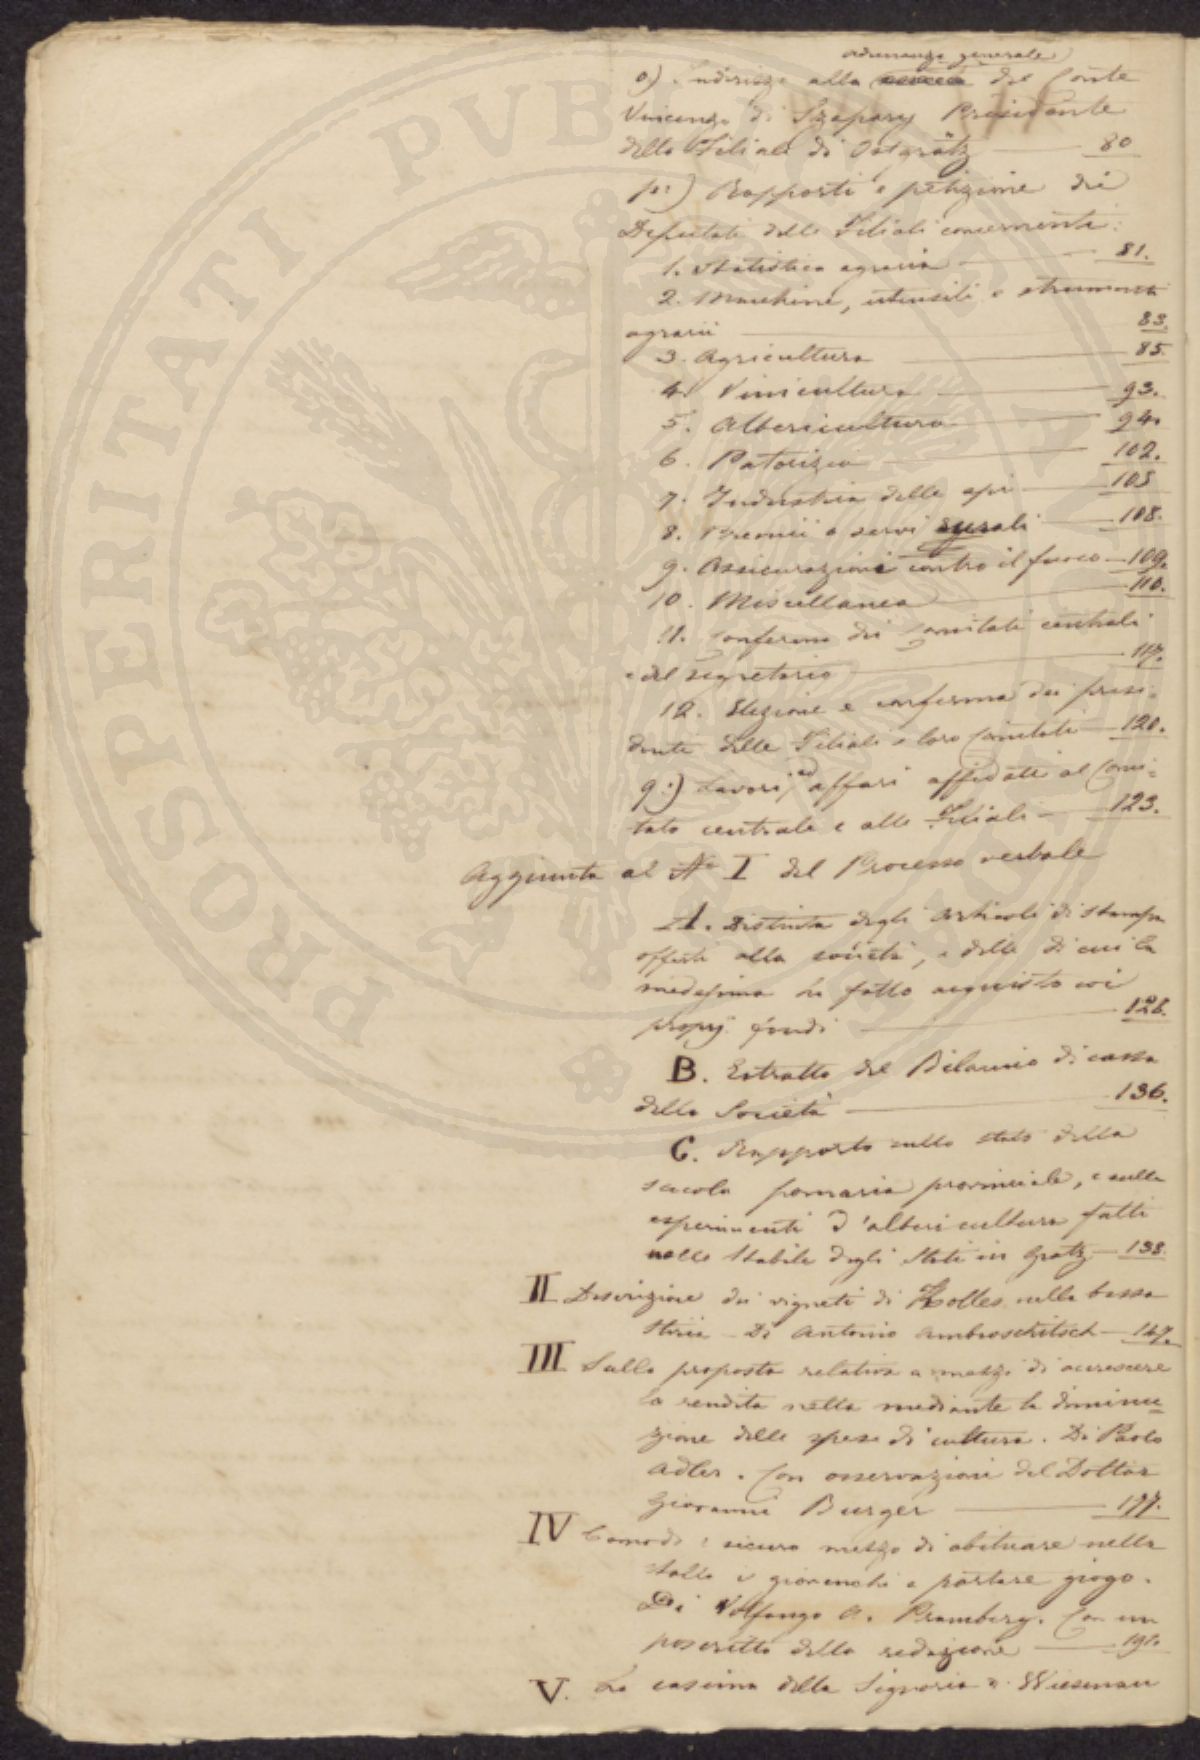 adunanza generale
o) Indirizzo alla società del Conte
Vincenzo di Szapary Presidente
della Filiale di Ostgrätz 80
p:) Rapporti e petizione dei
Deputati delle Filiali concernenti:
1. Statistica agraria 81.
2. Macchine, utensili e strumenti
agrarii 83.
3. Agricultura 85.
4. Vinicultura 93.
5. Albericultura 94.
6. Pastorizia 102.
7. Industria delle api 105
8. Premii a servi rurali 108.
9. Assicurazioni contro il fuoco 109.
10. Miscellanea 110.
11. Conferma dei Comitati centrali
e del segretario 117.
12. Elezione e conferma dei presi-
denti delle Filiali e loro Comitati 120.
q:) Lavori, ed affari affidati al Comi-
tato centrale e alle Filiali 123.
Aggiunta al No I del Processo verbale
A. Distinta degli articoli di stampa
offerti alla società, e delle di cui la
medesima ha fatto acquisto coi
proprj fondi 128.
B. Estratto del Bilancio di cassa
della Società 136.
C. Rapporto sullo stato della
scuola pomaria provinciale, e sulli
esperimenti d'albericultura fatti
nello Stabile degli Stati in Gratz 138.
II Descrizione dei vigneti di Kolles nella bassa
Stiria - Di Antonio Ambroschitsch 147.
III Sulla proposta relativa a mezzi di accrescere
la rendita netta mediante la diminu-
zione delle spese di cultura. Di Paolo
Adler. Con osservazioni del Dottor
Giovanni Burger 177.
IV Comodo e sicuro mezzo di abituare nella
stalla i giovenchi a portare giogo.
Di Volfango A. Pramberg. Con un
poscritto della redazione 191.
V. La cascina della Signoria a Wiesenau